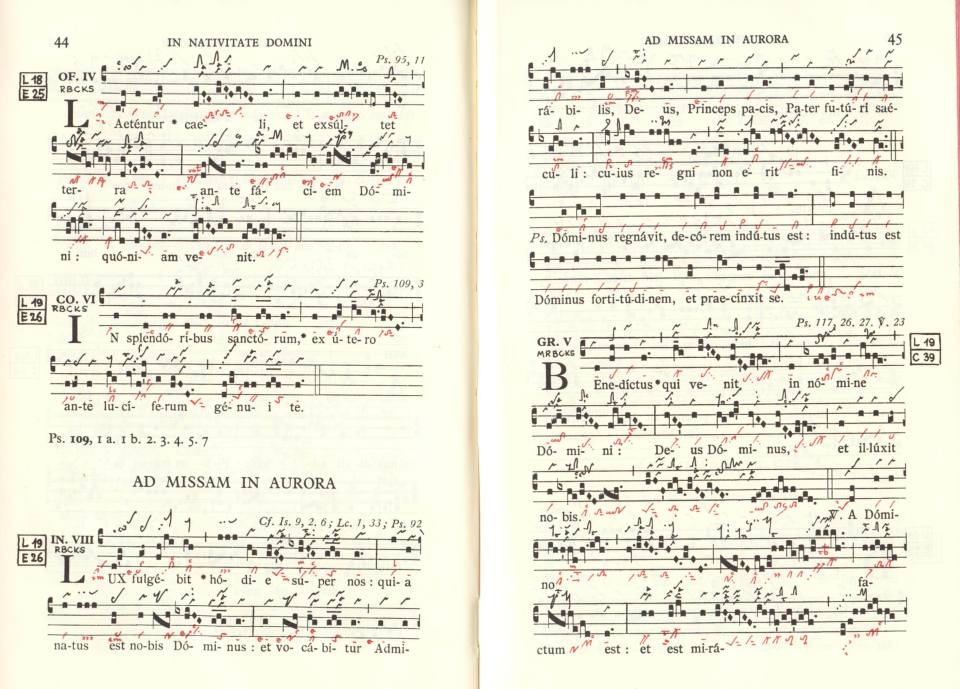 44 IN NATIVITATE DOMINI
Ps. 95, 11
L 18
E 25
OF. IV
RBCKS
L Aeténtur * cae- li, et exsúl- tet
ter- ra an- te fá- ci- em Dó- mi-
ni : quó-ni- am ve- nit.
Ps. 109, 3
L 19
E 26
CO. VI
RBCKS
I N splendó- ri-bus sanctó- rum, * ex ú- te- ro
an-te lu-cí- fe-rum gé- nu- i te.
Ps. 109, 1 a. 1 b. 2. 3. 4. 5. 7
AD MISSAM IN AURORA
Cf. Is. 9, 2. 6 ; Lc. 1, 33 ; Ps. 92
L 19
E 26
IN. VIII
RBCKS
L UX fulgé- bit * hó- di- e su- per nos : qui- a
na-tus est no-bis Dó- mi- nus : et vo- cá- bi- tur Admi-
AD MISSAM IN AURORA 45
rá- bi- lis, De- us, Princeps pa-cis, Pa-ter fu-tú- ri saé-
cu- li : cu-ius re- gni non e- rit fi- nis.
Ps. Dómi-nus regnávit, de-có-rem indú-tus est : indú-tus est
Dóminus forti-tú-di-nem, et prae-cínxit se.
Ps. 117, 26. 27. ℣. 23
GR. V
MRBCKS
L 19
C 39
B Ene-díctus * qui ve- nit in nó- mi-ne
Dó- mi- ni : De- us Dó- mi- nus, et il-lúxit
no- bis. ℣. A Dómi-
no fa-
ctum est : et est mi-rá-